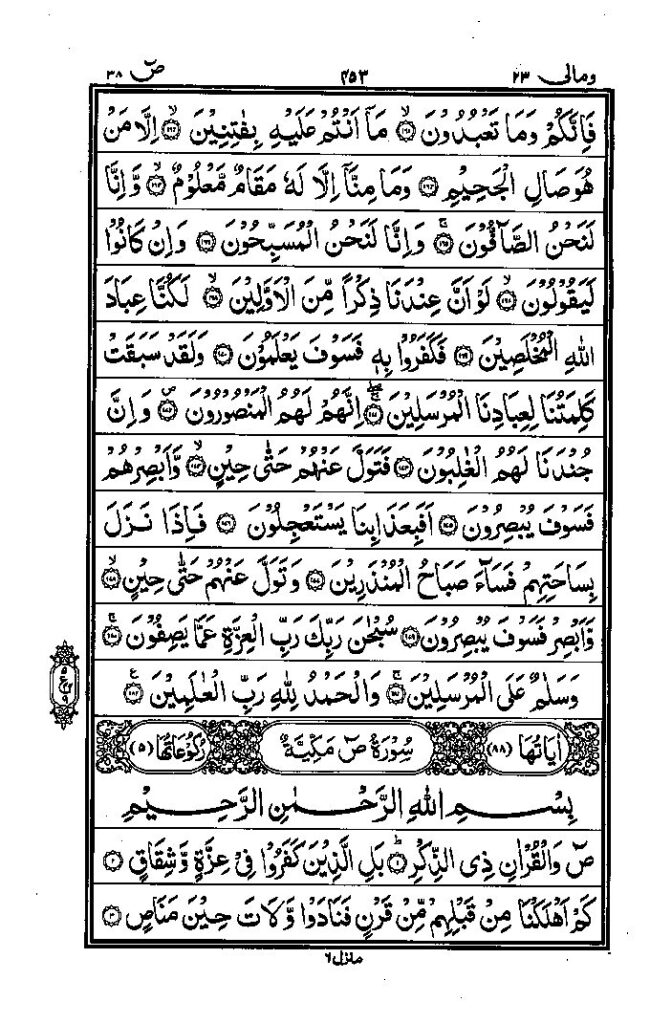 ومالی ۲۳ ۴۵۳ صٓ ۳۸
فَاِنَّكُمْ وَمَا تَعْبُدُوْنَ ۝۱۶۱ۙ مَاۤ اَنْتُمْ عَلَيْهِ بِفٰتِنِيْنَ ۝۱۶۲ۙ اِلَّا مَنْ
هُوَ صَالِ الْجَحِيْمِ ۝۱۶۳ وَمَا مِنَّاۤ اِلَّا لَهٗ مَقَامٌ مَّعْلُوْمٌ ۝۱۶۴ۙ وَّاِنَّا
لَنَحْنُ الصَّآفُّوْنَ ۝۱۶۵ۚ وَاِنَّا لَنَحْنُ الْمُسَبِّحُوْنَ ۝۱۶۶ وَاِنْ كَانُوْا
لَيَقُوْلُوْنَ ۝۱۶۷ۙ لَوْ اَنَّ عِنْدَنَا ذِكْرًا مِّنَ الْاَوَّلِيْنَ ۝۱۶۸ۙ لَكُنَّا عِبَادَ
اللّٰهِ الْمُخْلَصِيْنَ ۝۱۶۹ فَكَفَرُوْا بِهٖ فَسَوْفَ يَعْلَمُوْنَ ۝۱۷۰ وَلَقَدْ سَبَقَتْ
كَلِمَتُنَا لِعِبَادِنَا الْمُرْسَلِيْنَ ۝۱۷۱ۖۚ اِنَّهُمْ لَهُمُ الْمَنْصُوْرُوْنَ ۝۱۷۲۪ وَاِنَّ
جُنْدَنَا لَهُمُ الْغٰلِبُوْنَ ۝۱۷۳ فَتَوَلَّ عَنْهُمْ حَتّٰى حِيْنٍ ۝۱۷۴ۙ وَّاَبْصِرْهُمْ
فَسَوْفَ يُبْصِرُوْنَ ۝۱۷۵ اَفَبِعَذَابِنَا يَسْتَعْجِلُوْنَ ۝۱۷۶ فَاِذَا نَزَلَ
بِسَاحَتِهِمْ فَسَآءَ صَبَاحُ الْمُنْذَرِيْنَ ۝۱۷۷ وَتَوَلَّ عَنْهُمْ حَتّٰى حِيْنٍ ۝۱۷۸ۙ
وَّاَبْصِرْ فَسَوْفَ يُبْصِرُوْنَ ۝۱۷۹ سُبْحٰنَ رَبِّكَ رَبِّ الْعِزَّةِ عَمَّا يَصِفُوْنَ ۝۱۸۰ۚ
وَسَلٰمٌ عَلَى الْمُرْسَلِيْنَ ۝۱۸۱ۚ وَالْحَمْدُ لِلّٰهِ رَبِّ الْعٰلَمِيْنَ ۝۱۸۲
اٰيَاتُهَا (۸۸) سُوْرَةُ صٓ مَكِّيَّةٌ رُكُوْعَاتُهَا (۵)
بِسْمِ اللّٰهِ الرَّحْمٰنِ الرَّحِيْمِ
صٓ وَالْقُرْاٰنِ ذِى الذِّكْرِ ۝۱ؕ بَلِ الَّذِيْنَ كَفَرُوْا فِىْ عِزَّةٍ وَّشِقَاقٍ ۝۲
كَمْ اَهْلَكْنَا مِنْ قَبْلِهِمْ مِّنْ قَرْنٍ فَنَادَوْا وَّلَاتَ حِيْنَ مَنَاصٍ ۝۳
منزل ۶